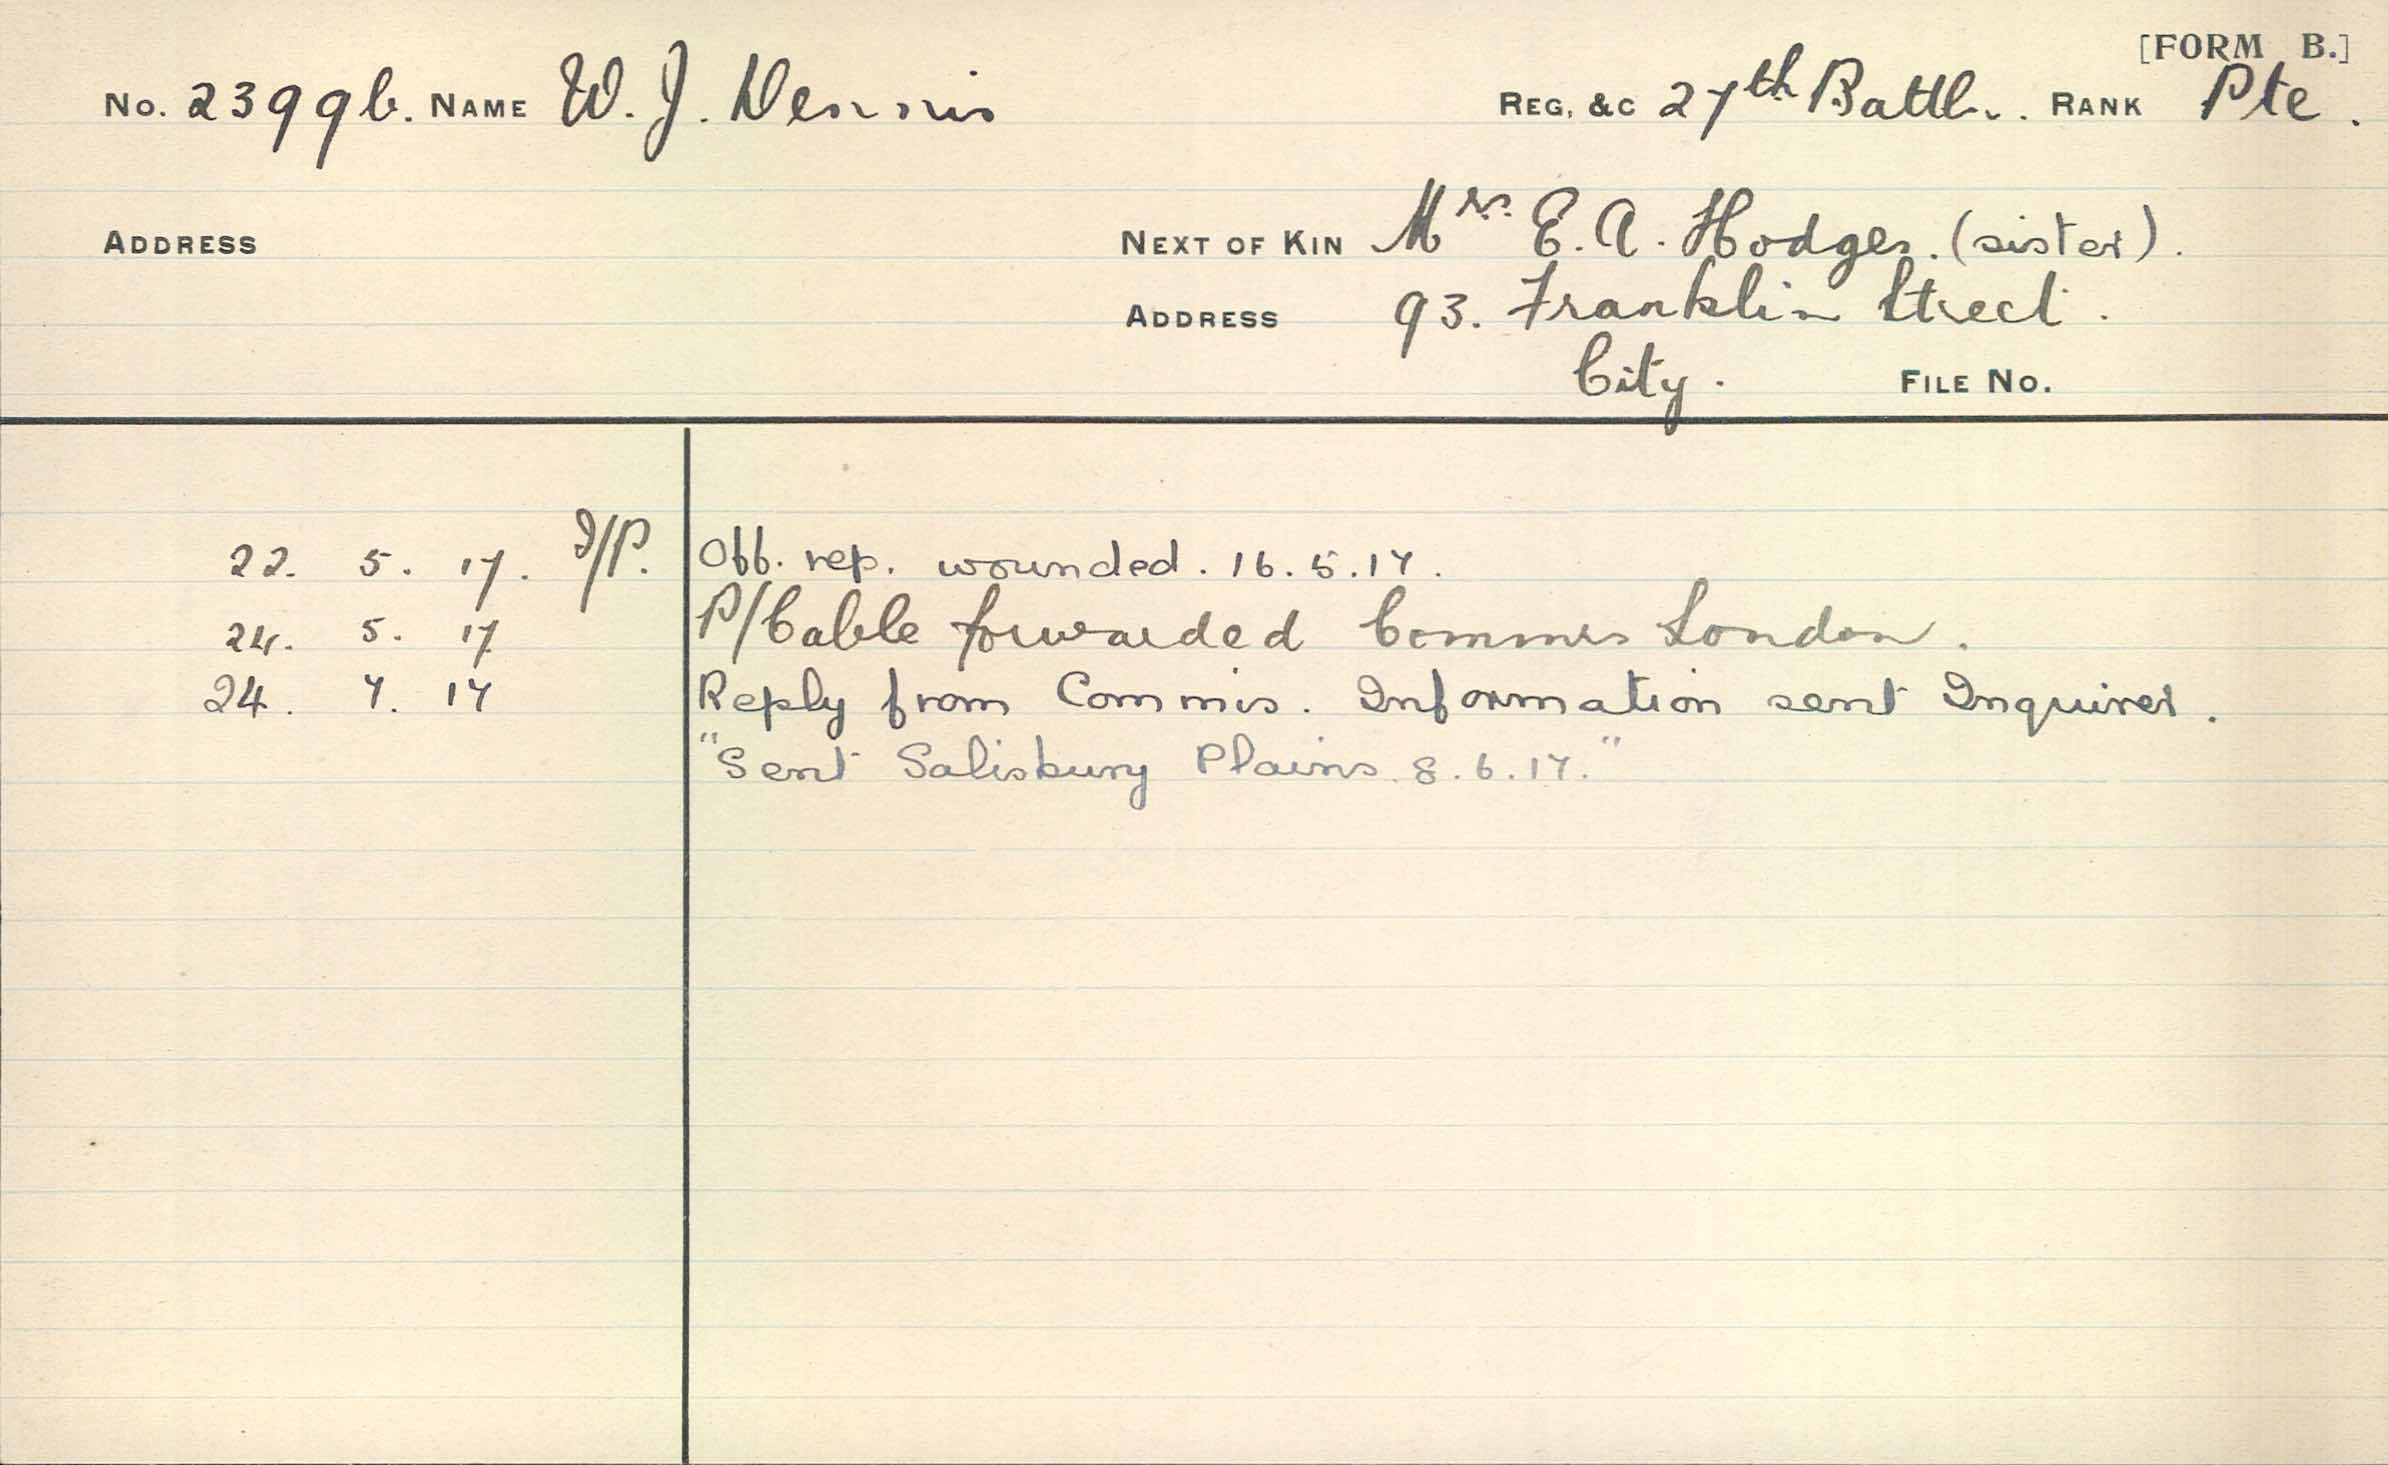 [FORM B.]
No. 2399b. NAME W. J. Dennis REG, &C 27th Battln. RANK Pte.
ADDRESS NEXT OF KIN Mrs. E. A. Hodges. (sister).
ADDRESS 93. Franklin Street.
City. FILE No.
22. 5. 17. I/P. Off. rep. wounded. 16.5.17.
24. 5. 17 P/Cable forwarded Commrs London.
24. 7. 17 Reply from Commis. Information sent Inquirer.
"Sent Salisbury Plains 8.6.17."